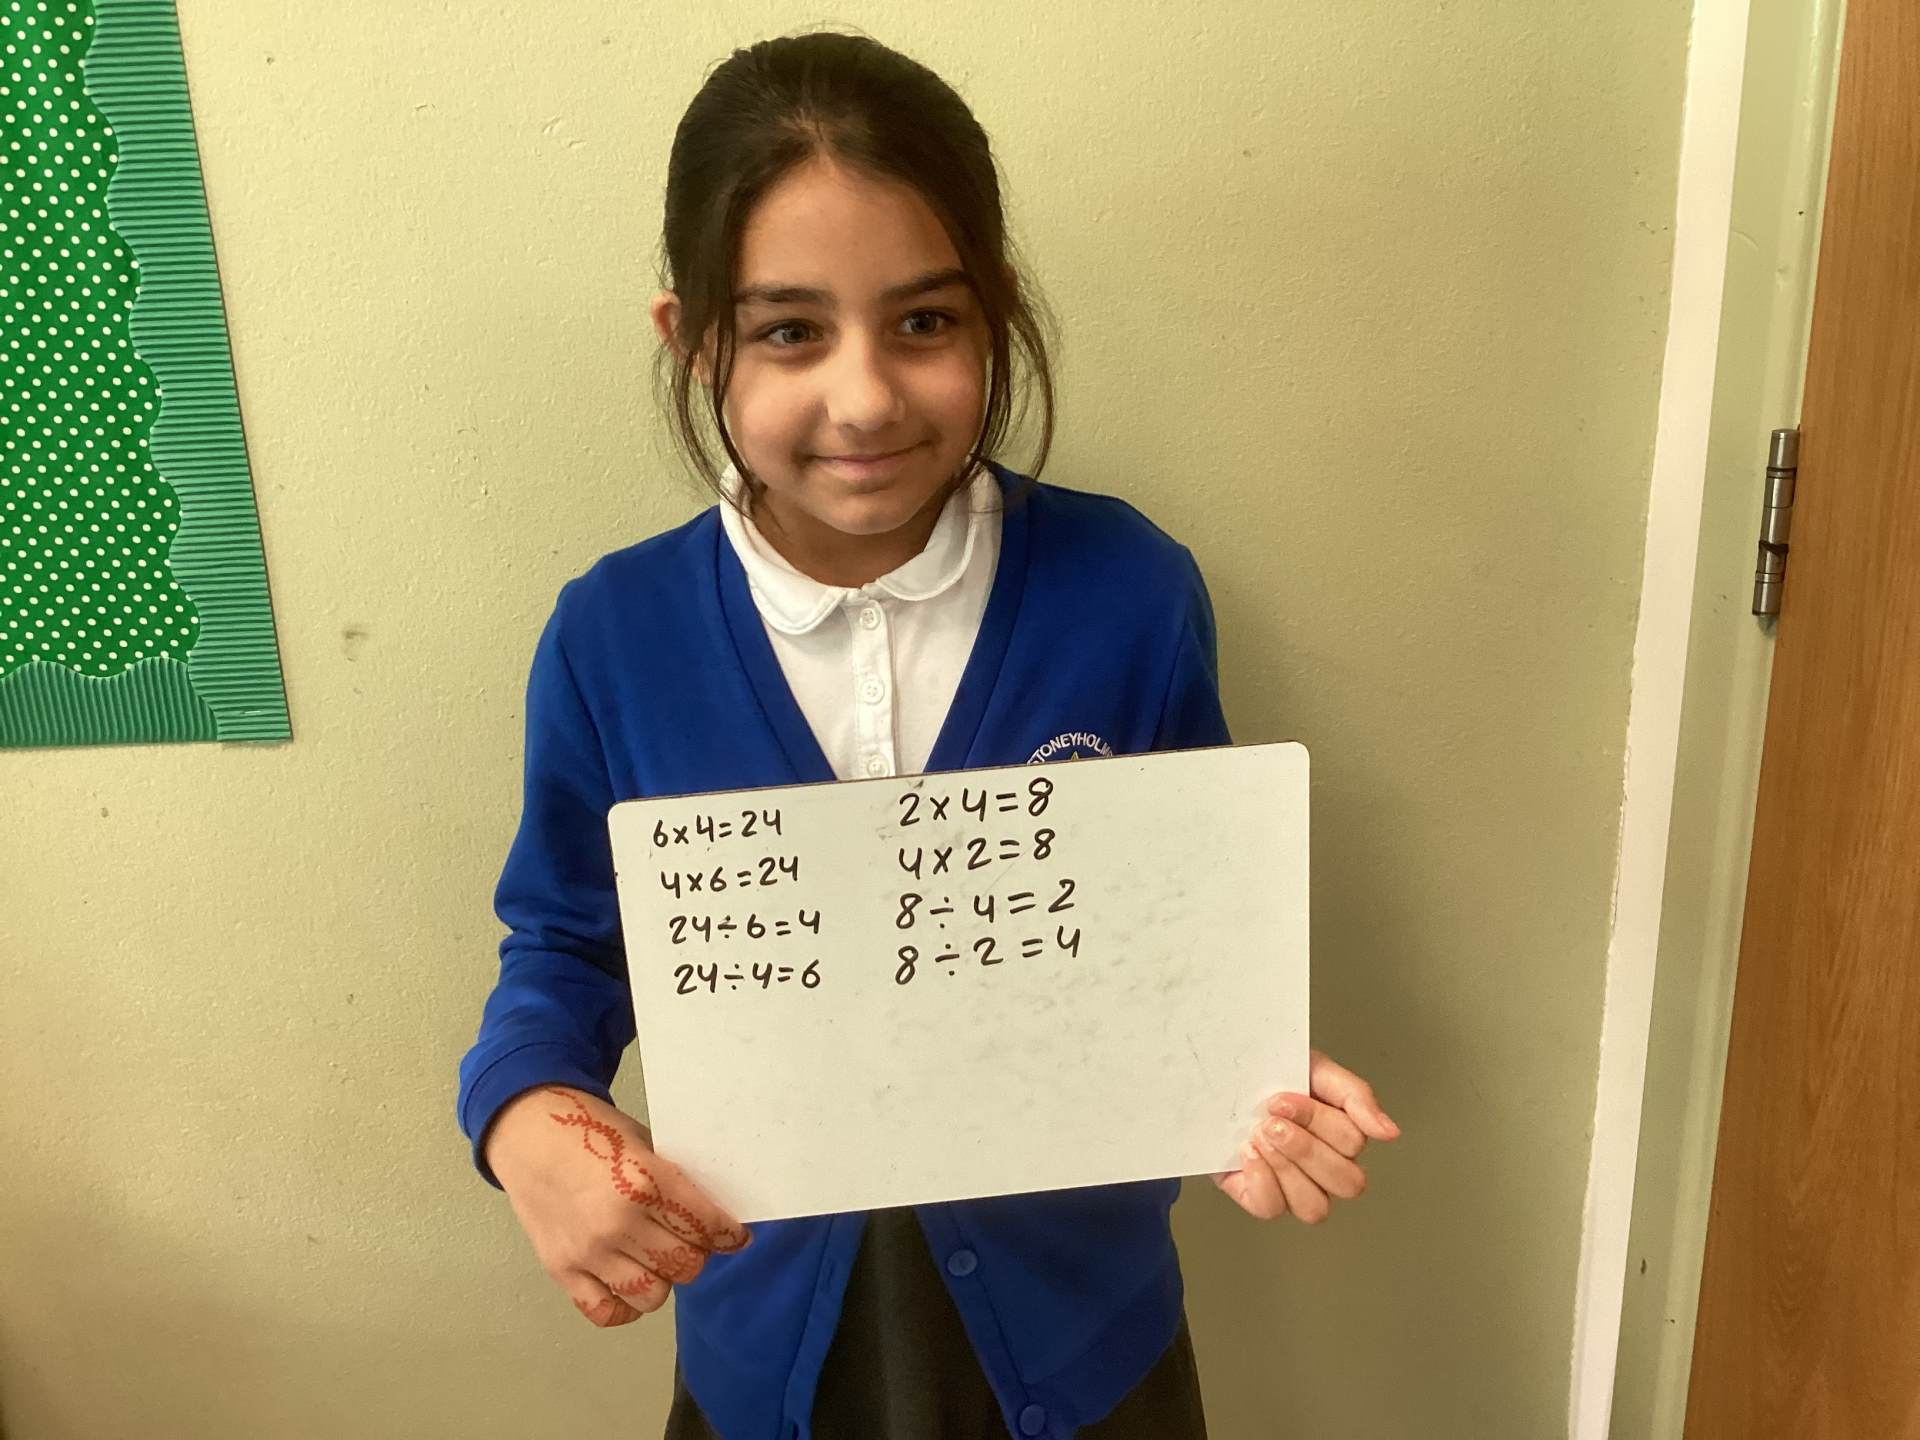 STONEYHOLME
6x4=24
4x6=24
24÷6=4
24÷4=6
2x4=8
4x2=8
8÷4=2
8÷2=4